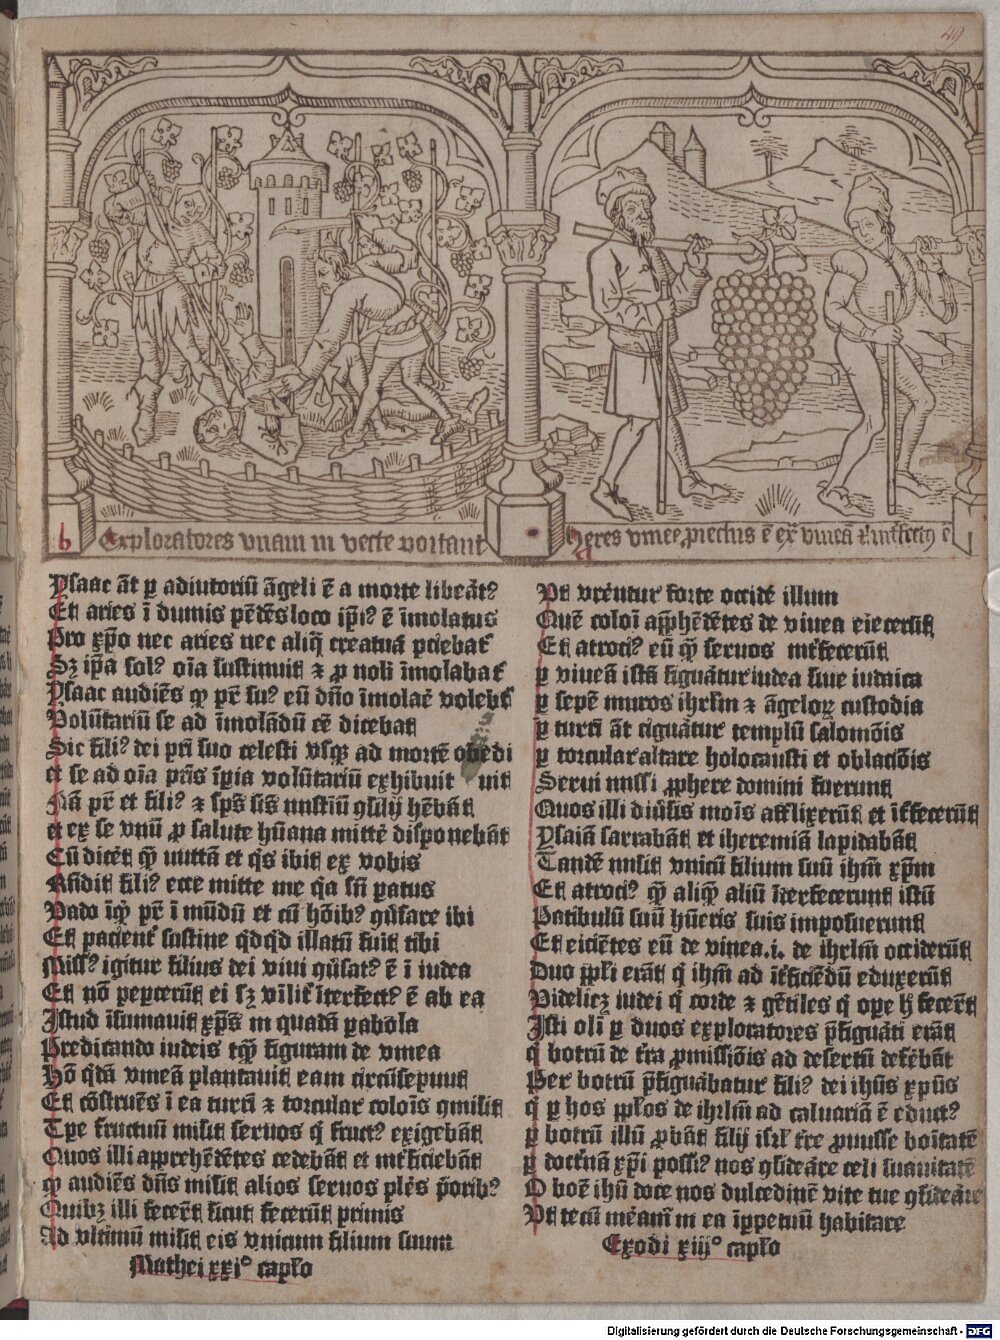 49
b Exploratores vnam in vecte portant
a Heres vinee ꝓiectus ē ex vineā ⁊ īterfectꝰ ē
Ysaac āt ꝑ adiutoriū āgeli ē a morte liberatꝰ
Et aries ī dumis pēdēs loco ipiꝰ ē īmolatus
Pro xp̄o nec aries nec aliq̄ creatura patiebat᷑
Sꝫ ip̄e solꝰ oīa sustinuit ⁊ ꝓ nobis īmolabat᷑
Ysaac audiēs ꝙ pr̄ suꝰ eū dn̄o īmolare vellet
Volūtariū se ad īmolādū eē dicebat
Sic filiꝰ dei pr̄i suo celesti vsqꝫ ad mortē obedi
et se ad oīa pr̄is īperia volūtariū exhibuit uit
Nā pr̄ et filiꝰ ⁊ sp̄s sc̄s
et ex se vnū ꝓ salute hūana mitte disponebāt
Cū dicēt ꝙ mittā et qͥs ibit ex vobis
Rn̄dit filiꝰ ecce mitte me qͥa sū paratus
Vado īqͥt pr̄ ī mūdū et cū hōibꝰ ꝯūsare ibi
Et pacient᷑ sustine qͥdqͥd illatū fuit tibi
Missꝰ igitur filius dei viui ꝯūsatꝰ ē ī iudea
Et nō pepercerūt ei sꝫ vilit᷑ īterfectꝰ ē ab ea
Istud īsinuauit xp̄s in quadā ꝑabola
Predicando iudeis figuram de vinea
Hō qͥdā vineā plantauit eam circūsepiuit
Et cōstruēs ī ea turrī ⁊ torcular colōis ꝯmisit
Tp̄e fructuū misit seruos qͥ fructꝰ exigebāt
Quos illi apprehēdētes cedebāt et īterficiebāt
ꝙ audiēs dn̄s misit alios seruos ples p̄oribꝰ
Quibꝫ illi fecerūt sicut fecerūt primis
Ad vltimū misit eis vnicum filium suum
Mathei xxi° capl̄o
Vt vererentur forte occidere illum
Quē coloni app̄hēdētes de vinea eiecerūt
Et atrociꝰ eū ꝙ̄ seruos īterfecerūt
ꝑ vineā istā figurātur iudea siue iudaica
ꝑ sepē muros ihrl̄m ⁊ āgeloꝝ custodia
ꝑ turrī āt figurātur templū salomōis
ꝑ torcular altare holocausti et oblatiōis
Serui missi ꝓphete domini fuerunt
Quos illi diūsis mōis afflixerūt et īterfecerūt
Ysaiā sarrabāt et iheremiā lapidabāt
Tandē misit vnicū filium suū ihm̄ xp̄m
Et atrociꝰ ꝙ̄ aliqͥ aliū īterfecerunt istū
Patibulū suū hūeris suis imposuerunt
Et eiciētes eū de vinea .i. de ihrl̄m occiderūt
Duo pp̄li erāt qͥ ihm̄ ad īterficiēdū eduxerūt
Videlicꝫ iudei qͥ corde ⁊ gētiles qͥ oꝑe fecerūt
Isti oli ꝑ duos exploratores p̄figurāti erāt
qͥ botrū de tr̄a ꝓmissiōis ad desertū deferebāt
Per botrū p̄figurabatur filiꝰ dei ihūs xp̄us
qͥ ꝑ hos pp̄los de ihrl̄m ad caluariā ē eductꝰ
ꝑ botrū illū ꝓbāt filij isrl̄ tr̄e ꝓmisse bonitatē
ꝑ doctrinā xp̄i possumꝰ nos ꝯsiderare celi suauitatē
O bone ihū doce nos dulcedinē vite tue ꝯsiderare
Vt tecū mereamur in ea īꝑpetuū habitare
Exodi xiij° capl̄o
Digitalisierung gefördert durch die Deutsche Forschungsgemeinschaft - DFG